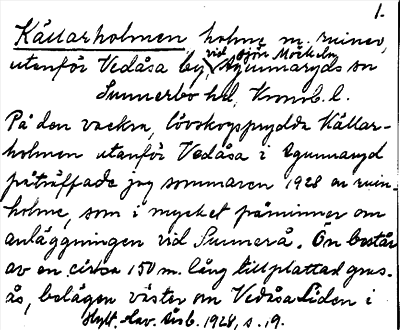 1.
Källarholmen, holme m. ruiner,
utanför Vedåsa by, vid sjön Möckeln, Agunnaryds sn
Sunnerbo hd, Kronob. l.
På den vackra, lövskogsprydda Källar-
holmen utanför Vedåsa i Agunnaryd
påträffade jag sommaren 1928 en ruin-
holme, som i mycket påminner om
anläggningen vid Sunnerå. Ön består
av en cirka 150 m. lång tillplattad grus-
ås, belägen väster om Vedåsa Liden i
Hylt. Hav. Årsb. 1928, s. 19.